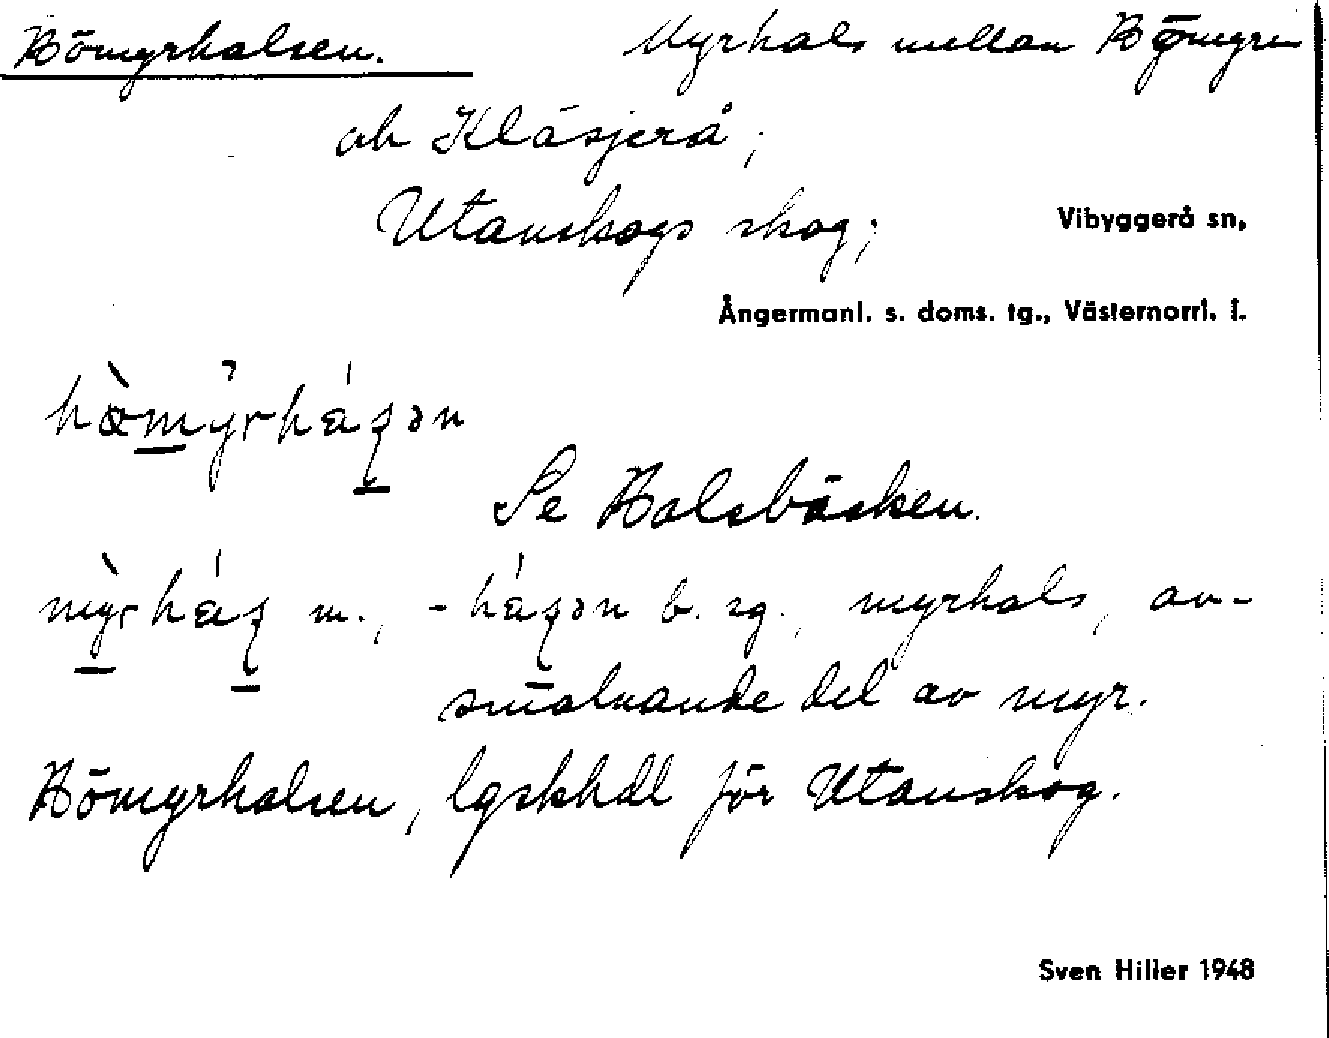 Hömyrhalsen. Myrhals mellan Hömyren
och Kläsjerå;
Utanskogs skog; Vibyggerå sn,
Ångermanl. s. doms. tg., Västernorrl. l.
Se Halsbäcken.
m., b. sg., myrhals, av-
smalnande del av myr.
Hömyrhalsen, lgskhdl för Utanskog.
Sven Hiller 1948